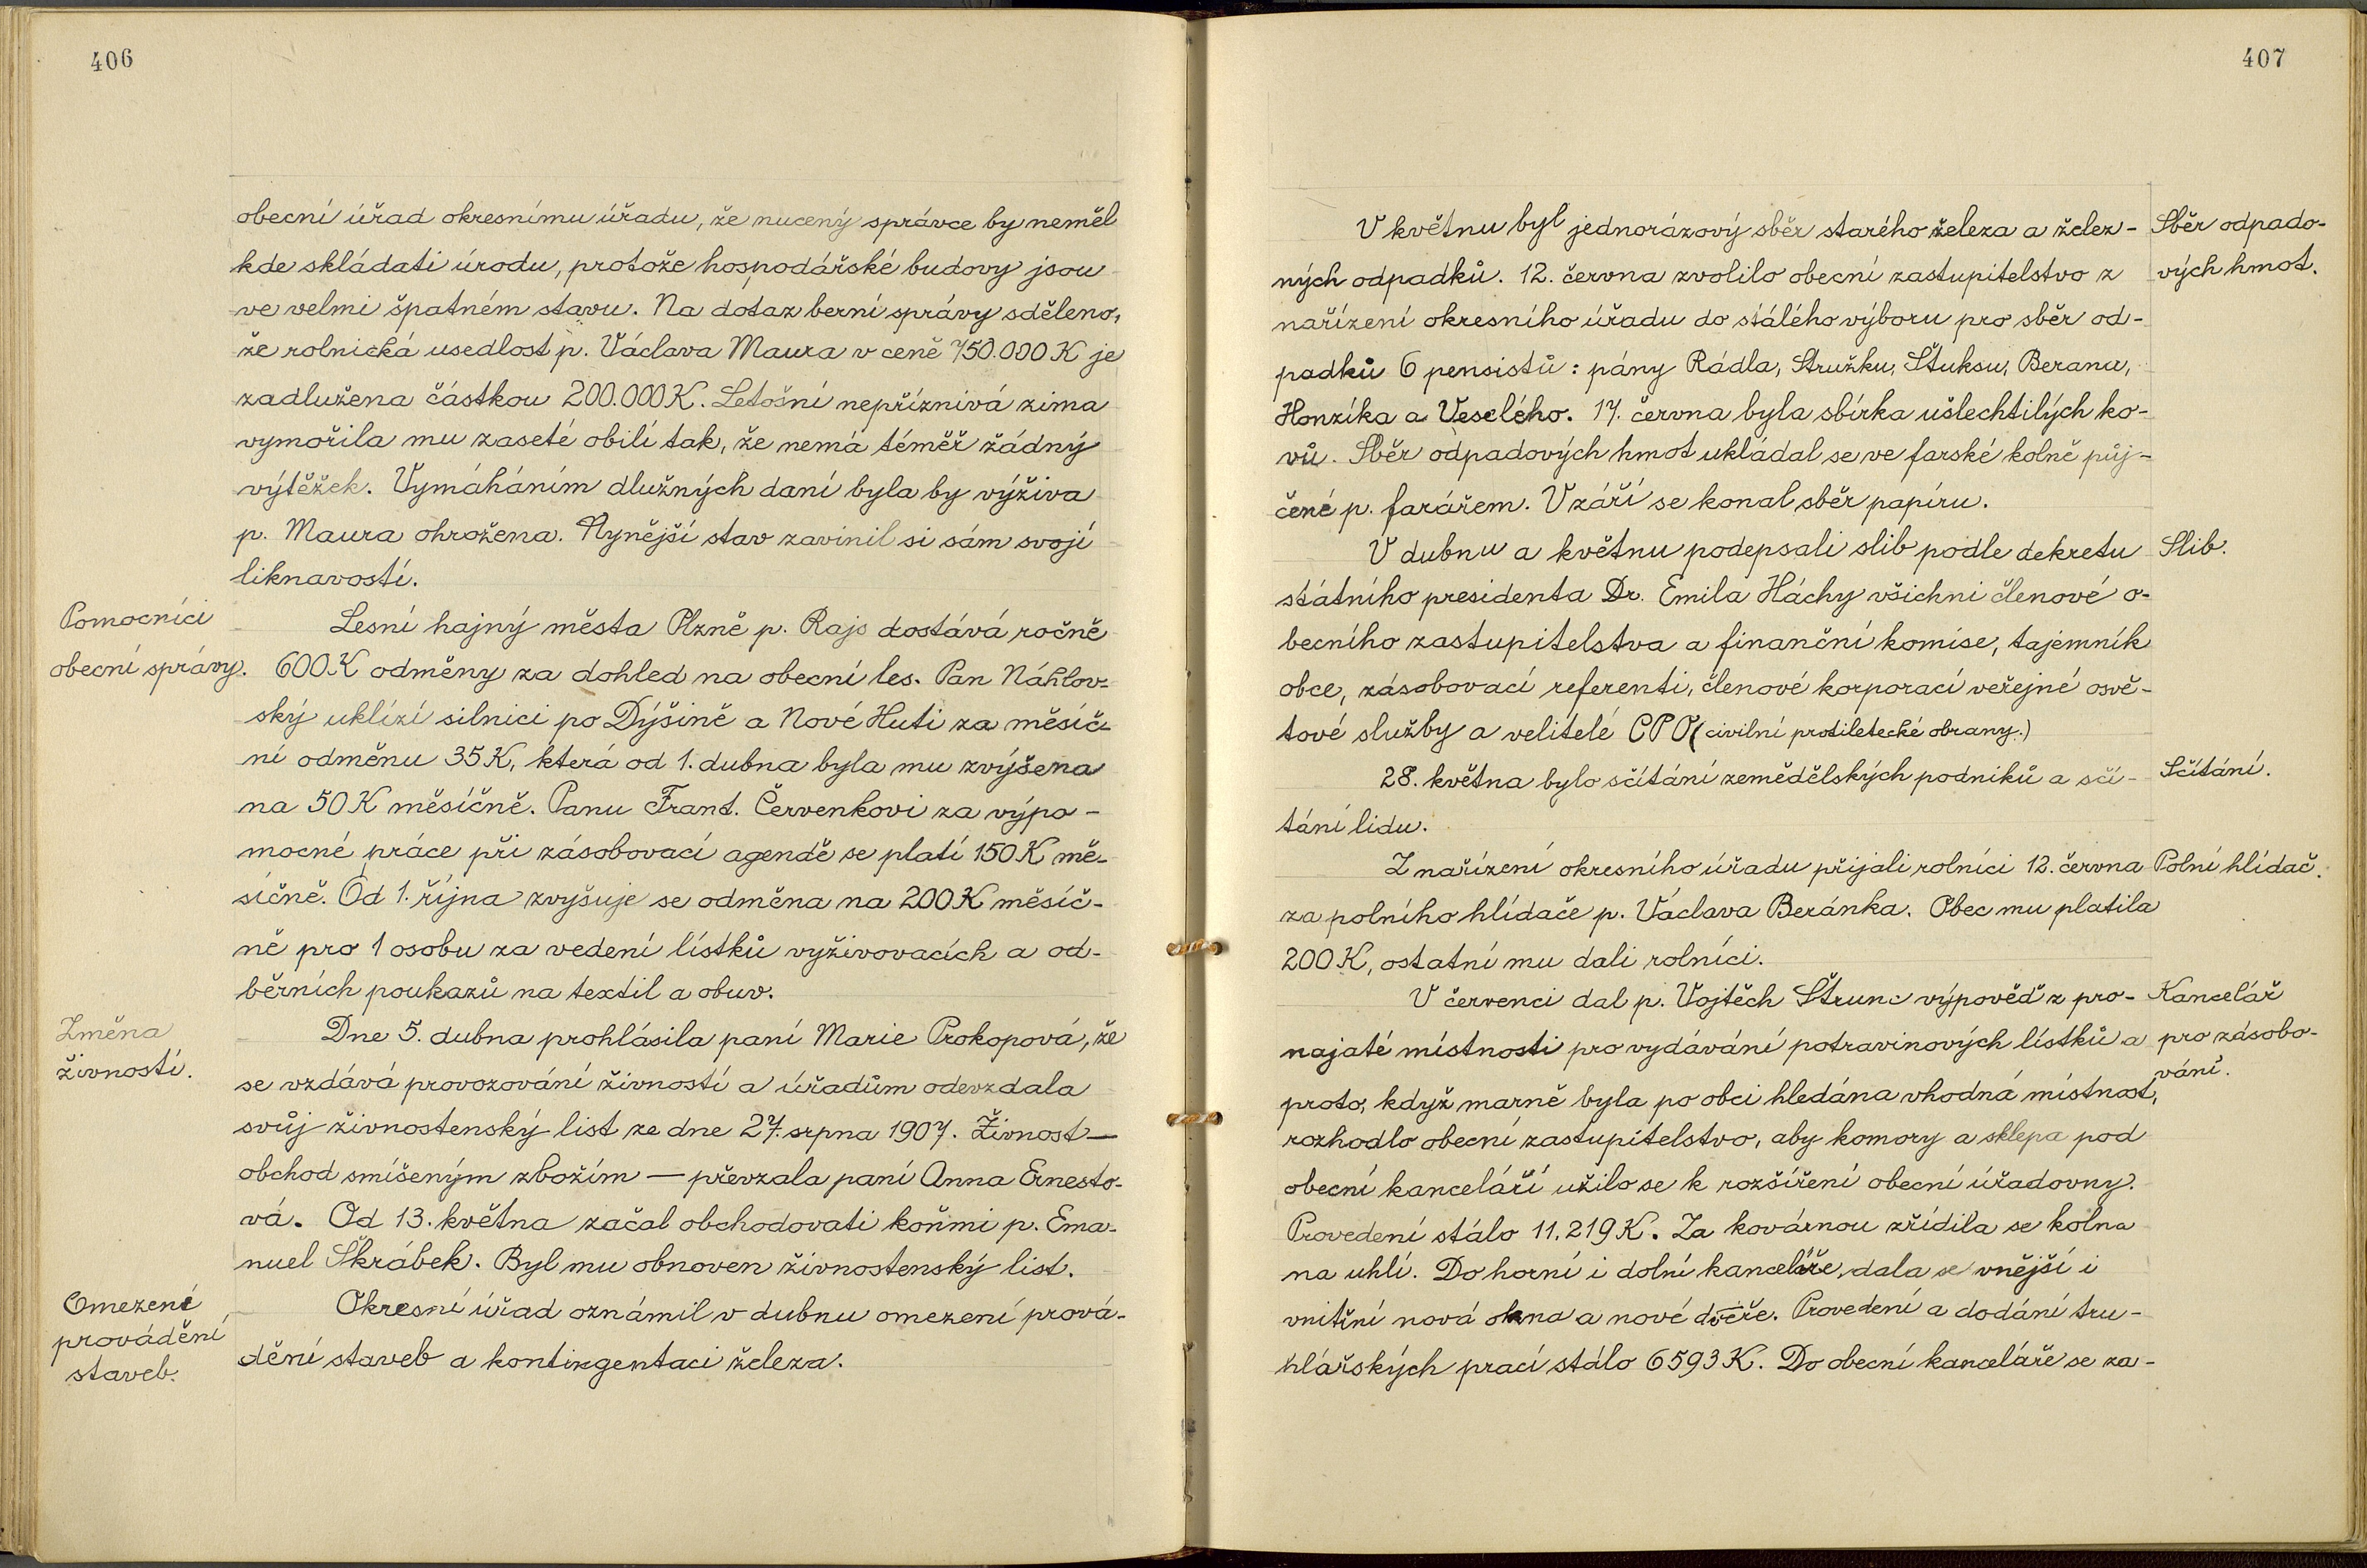 406
obecní úřad okresnímu úřadu, že nucený správce by neměl
kde skládati úrodu, protože hospodářské budovy jsou
ve velmi špatném stavu. Na dotaz berní správy sděleno,
že rolnická usedlost p. Václava Maura v ceně 750.000 K je
zadlužena částkou 200.000 K. Letošní nepříznivá zima
vymořila mu zaseté obilí tak, že nemá téměř žádný
výtěžek. Vymáháním dlužných daní byla by výživa
p. Maura ohrožena. Nynější stav zavinil si sám svojí
liknavostí.
Pomocníci
obecní správy.
Lesní hajný města Plzně p. Rajs dostává ročně
600 K odměny za dohled na obecní les. Pan Náhlov-
ský uklízí silnici po Dýšině a Nové Huti za měsíč-
ní odměnu 35 K, která od 1. dubna byla mu zvýšena
na 50 K měsíčně. Panu Frant. Červenkovi za výpo-
mocné práce při zásobovací agendě se platí 150 K mě-
síčně. Od 1. října zvyšuje se odměna na 200 K měsíč-
ně pro 1 osobu za vedení lístků vyživovacích a od-
běrních poukazů na textil a obuv.
Změna
živností.
Dne 5. dubna prohlásila paní Marie Prokopová, že
se vzdává provozování živností a úřadům odevzdala
svůj živnostenský list ze dne 27. srpna 1907. Živnost —
obchod smíšeným zbožím — převzala paní Anna Ernesto-
vá. Od 13. května začal obchodovati koňmi p. Ema-
nuel Škrábek. Byl mu obnoven živnostenský list.
Omezení
provádění
staveb.
Okresní úřad oznámil v dubnu omezení prová-
dění staveb a kontingentaci železa.
407
V květnu byl jednorázový sběr starého železa a želez-
ných odpadků. 12. června zvolilo obecní zastupitelstvo z
nařízení okresního úřadu do stálého výboru pro sběr od-
padků 6 pensistů: pány Rádla, Stružku, Štuksu, Berana,
Honzíka a Veselého. 17. června byla sbírka ušlechtilých ko-
vů. Sběr odpadových hmot ukládal se ve farské kolně půj-
čené p. farářem. V září se konal sběr papíru.
Sběr odpado-
vých hmot.
V dubnu a květnu podepsali slib podle dekretu
státního presidenta Dr. Emila Háchy všichni členové o-
becního zastupitelstva a finanční komise, tajemník
obce, zásobovací referenti, členové korporací veřejné osvě-
tové služby a velitelé CPO (civilní protiletecké obrany.)
Slib.
28. května bylo sčítání zemědělských podniků a sčí-
tání lidu.
Sčítání.
Z nařízení okresního úřadu přijali rolníci 12. června
za polního hlídače p. Václava Beránka. Obec mu platila
200 K, ostatní mu dali rolníci.
Polní hlídač.
V červenci dal p. Vojtěch Štrunc výpověď z pro-
najaté místnosti pro vydávání potravinových lístků a
proto, když marně byla po obci hledána vhodná místnost,
rozhodlo obecní zastupitelstvo, aby komory a sklepa pod
obecní kanceláří užilo se k rozšíření obecní úřadovny.
Provedení stálo 11.219 K. Za kovárnou zřídila se kolna
na uhlí. Do horní i dolní kanceláře dala se vnější i
vnitřní nová okna a nové dvéře. Provedení a dodání tru-
hlářských prací stálo 6593 K. Do obecní kanceláře se za-
Kancelář
pro zásobo-
vání.